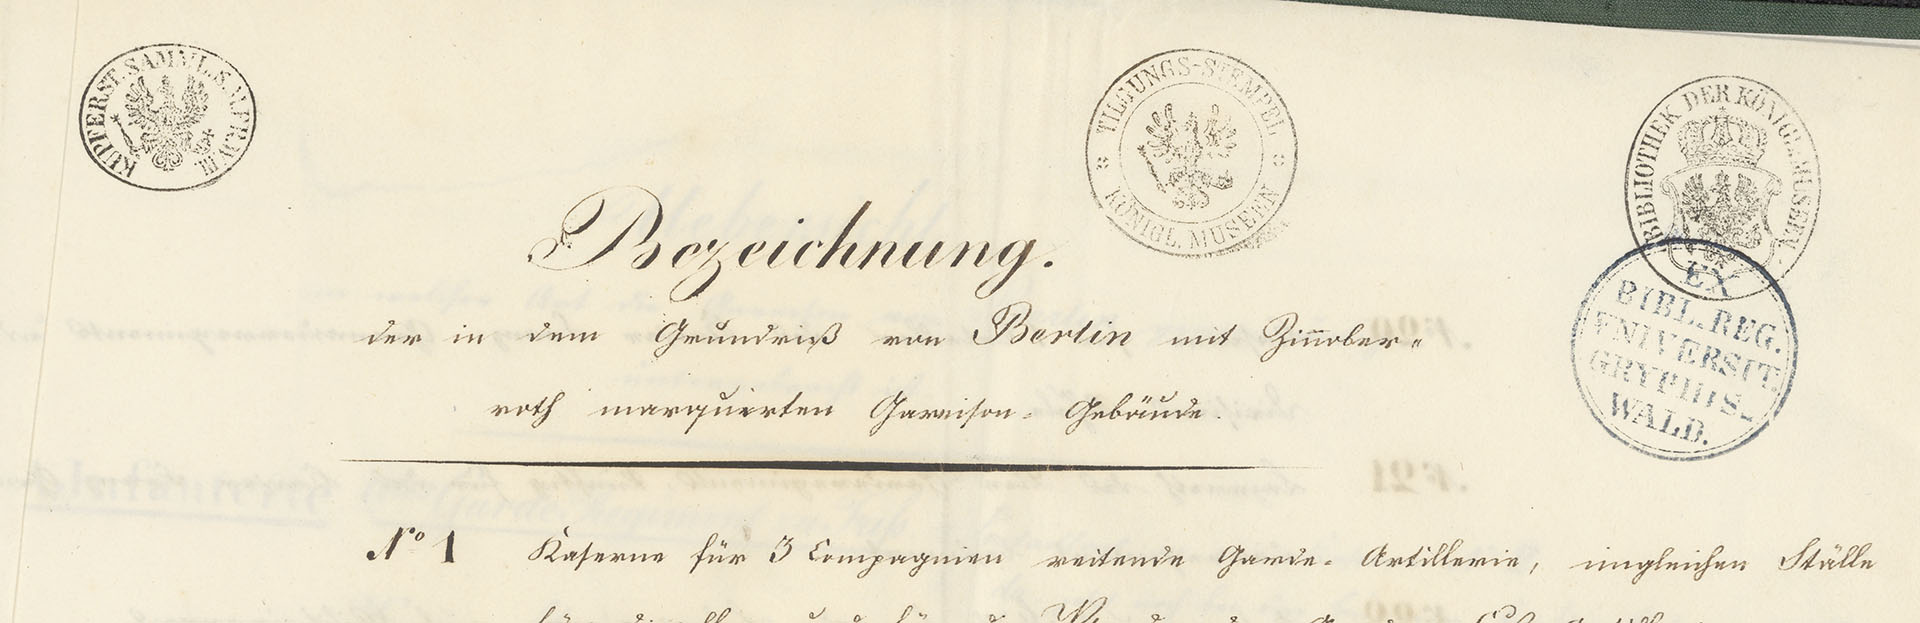 KUPFERST. SAMML. K. W. FR. W. III.
TILGUNGS-STEMPEL
KÖNIGL. MUSEEN
BIBLIOTHEK DER KÖNIGL. MUSEEN
EX
BIBL. REG.
VNIVERSIT.
GRYPHIS-
WALD.
Bezeichnung.
der in dem Grundriß von Berlin mit Zin̄ober-
roth marquirten Garnison-Gebäude.
No 1 Kaserne für 3 Compagnien reitende Garde-Artillerie, imgleichen Ställe